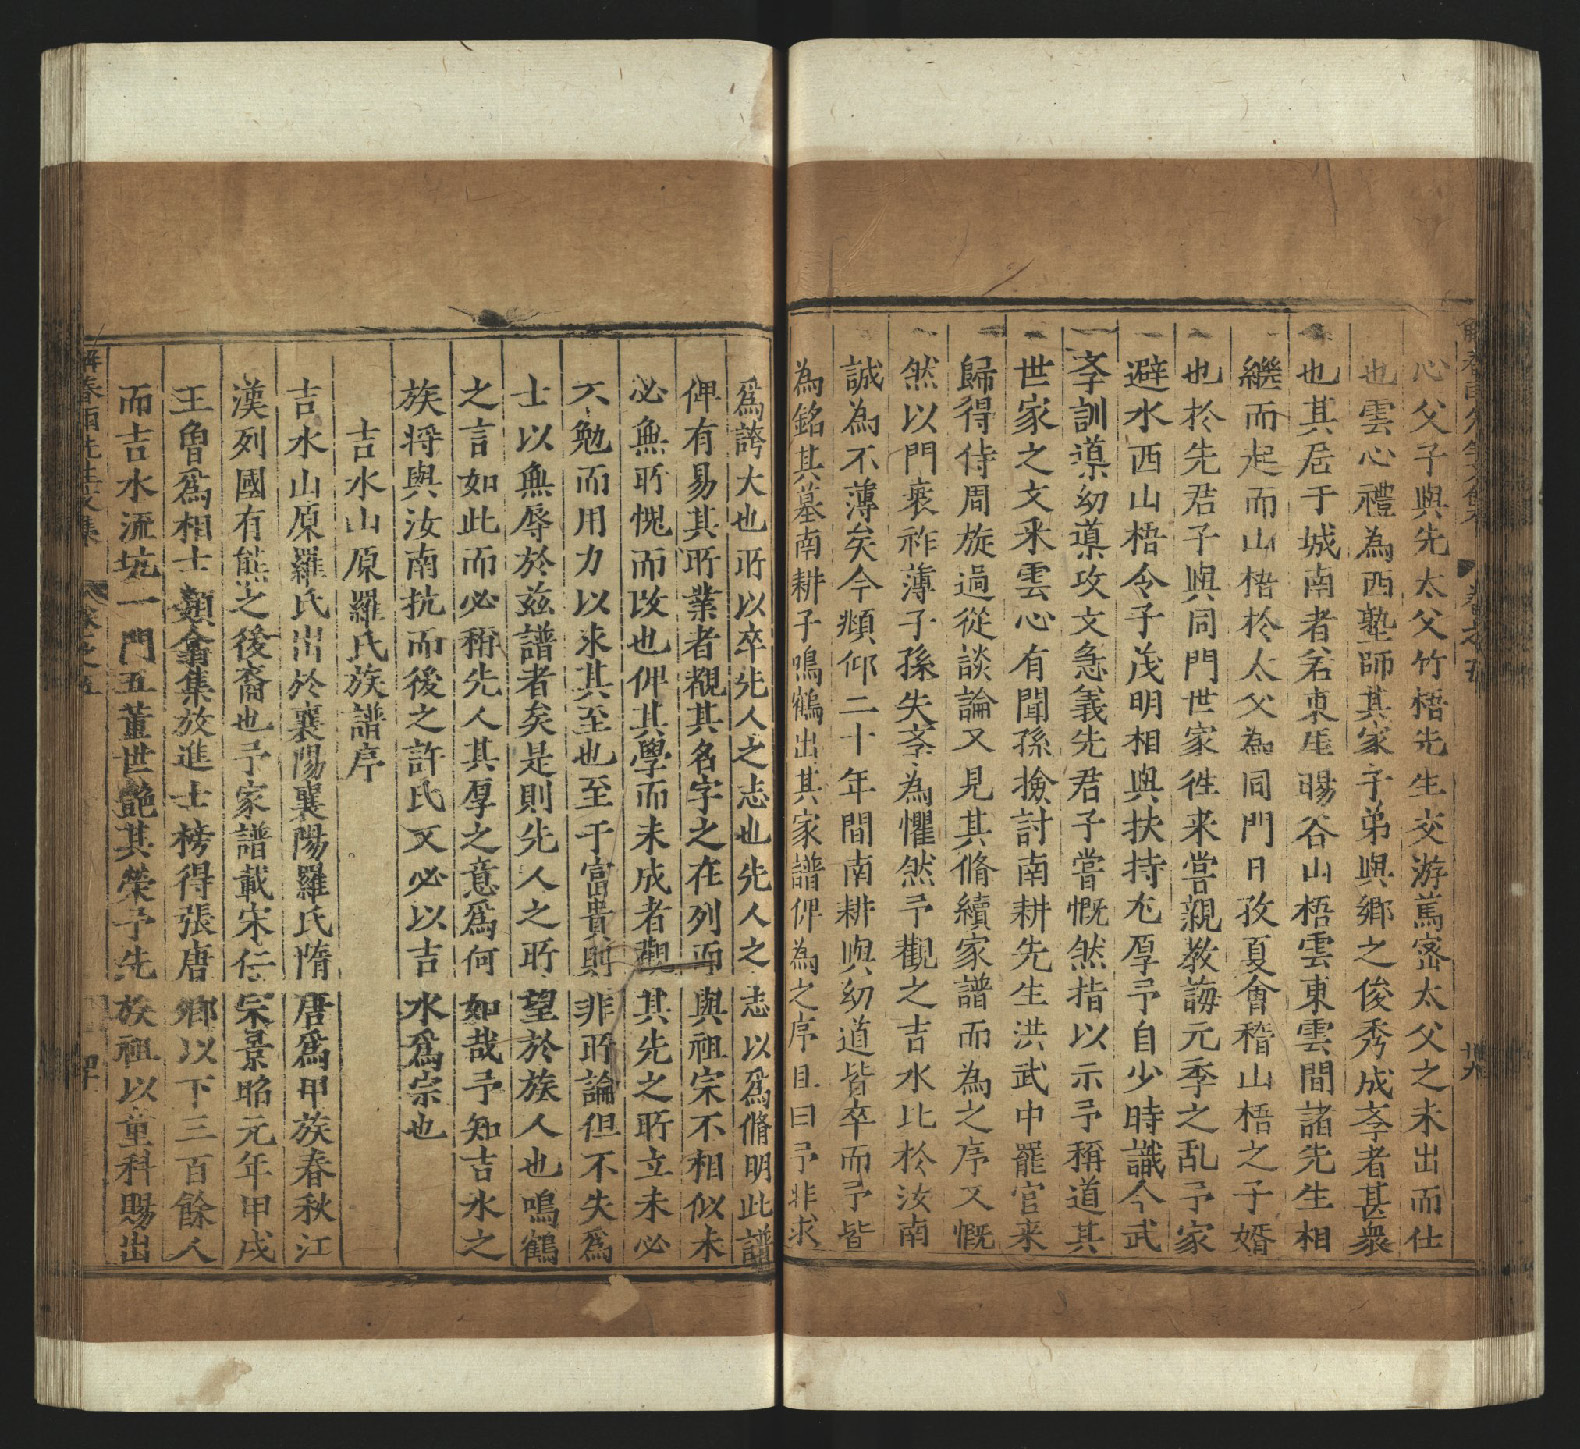 心父子與先太父竹梧先生交游篤密太父之未出而仕
也雲心禮為西塾師其家子弟與鄉之俊秀成孝者甚衆
也其居于城南者若東厓暘谷山梧雲東雲間諸先生相
繼而起而山梧於太父為同門日孜夏會稽山梧之子婿
也於先君子與同門世家徃来甞親教誨元季之乱予家
避水西山梧令子茂明相與扶持尤厚予自少時識今武
孝訓導幼導攻文急義先君子嘗慨然指以示予稱道其
世家之文采雲心有聞孫撿討南耕先生洪武中罷官来
歸得侍周旋過從談論又見其脩續家譜而為之序又慨
然以門衰祚薄子孫失孝為懼然予觀之吉水比於汝南
誠為不薄矣今頫仰二十年間南耕與幼道皆卒而予皆
為銘其墓南耕子鳴鶴出其家譜俾為之序且曰予非求
爲誇大也所以卒先人之志也先人之志以爲脩明此譜
俾有易其所業者覩其名字之在列而與祖宗不相似未
必無所愧而改也俾其學而未成者觀其先之所立未必
不勉而用力以求其至也至于富貴則非所論但不失爲
士以無辱於兹譜者矣是則先人之所望於族人也鳴鶴
之言如此而必稱先人其厚之意爲何如哉予知吉水之
族将與汝南抗而後之許氏又必以吉水爲宗也
吉水山原羅氏族譜序
吉水山原羅氏出於襄陽襄陽羅氏隋唐爲甲族春秋江
漢列國有熊之後裔也予家譜載宋仁宗景祐元年甲戌
王魯爲相士類翕集放進士榜得張唐卿以下三百餘人
而吉水流坑一門五董世艶其榮予先族祖以童科賜出